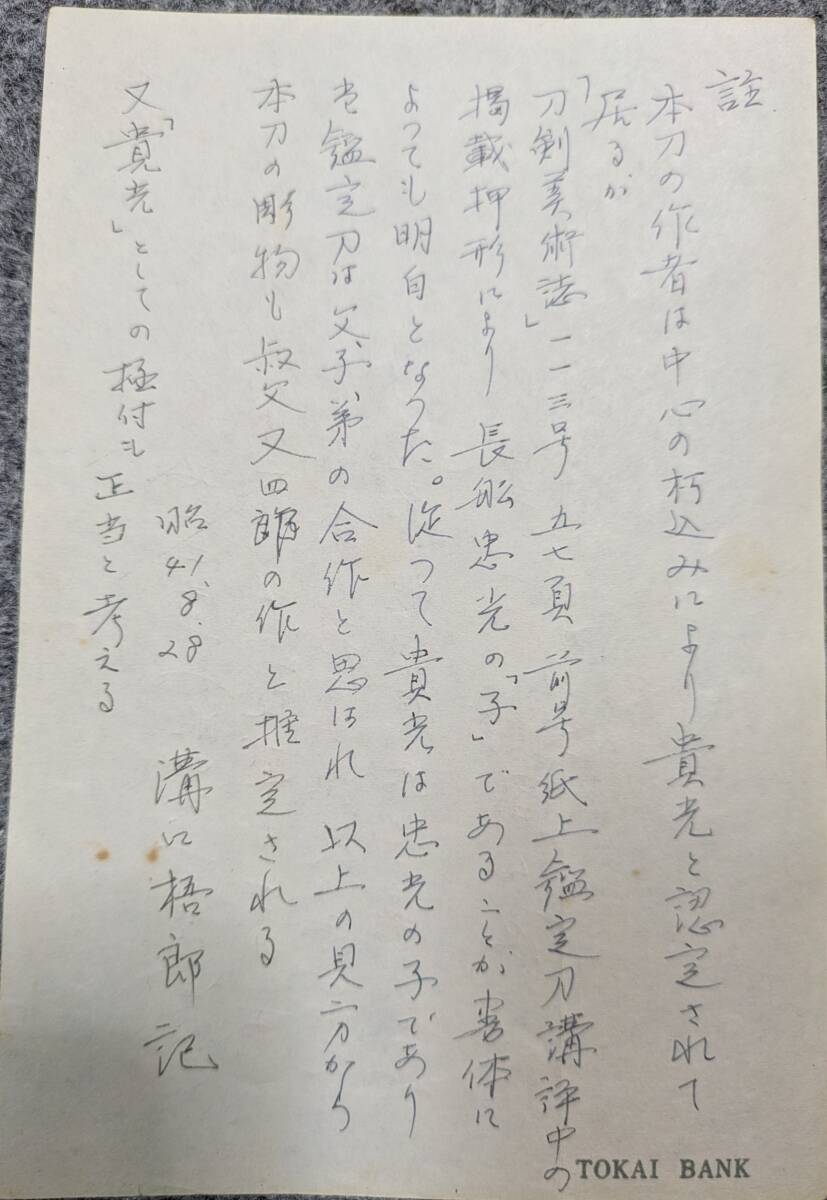 註
本刀の作者は中心の朽込みにより貴光と認定されて
居るが
「刀剣美術誌」一一三号 五七頁 前号紙上鑑定刀講評中の
掲載押形により 長船忠光の「子」であることが書体に
よつても明白となつた。従つて貴光は忠光の子であり
当鑑定刀は父、子、弟の合作と思はれ 以上の見方から
本刀の彫物も叔父又四郎の作と推定される
又「貴光」としての極付も正当と考える
昭41.8.28 溝口梧郎記
TOKAI BANK